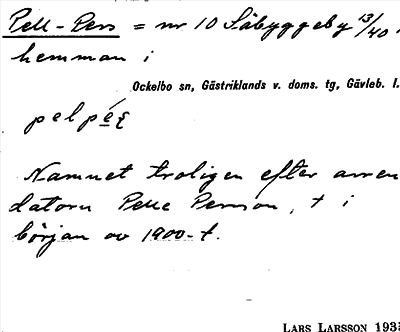 Pell-Pers = nr 10 Säbyggeby 13/40,
hemman i
Ockelbo sn, Gästriklands v. doms. tg, Gävleb. l.
Namnet troligen efter arren
datorn Pelle Persson, † i
början av 1900-t.
LARS LARSSON 1935